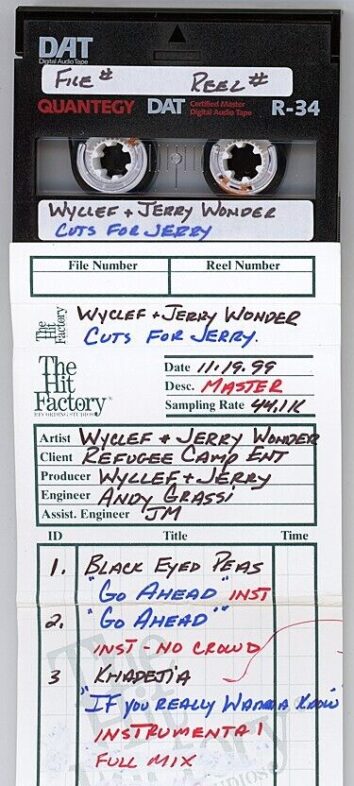 DAT
Digital Audio Tape
FILE # REEL #
QUANTEGY DAT Certified Master Digital Audio Tape R-34
WYCLEF + JERRY WONDER
CUTS FOR JERRY
File Number Reel Number
The Hit Factory
WYCLEF + JERRY WONDER
CUTS FOR JERRY.
The Hit Factory
RECORDING STUDIOS
Date 11.19.99
Desc. MASTER
Sampling Rate 44.1K
Artist WYCLEF + JERRY WONDER
Client REFUGEE CAMP ENT
Producer WYCLEF + JERRY
Engineer ANDY GRASSI
Assist. Engineer JM
ID Title Time
1. BLACK EYED PEAS
"GO AHEAD" INST
2. "GO AHEAD"
INST - NO CROWD
3 KHADEJIA
"IF YOU REALLY WANNA KNOW
INSTRUMENTAL
FULL MIX